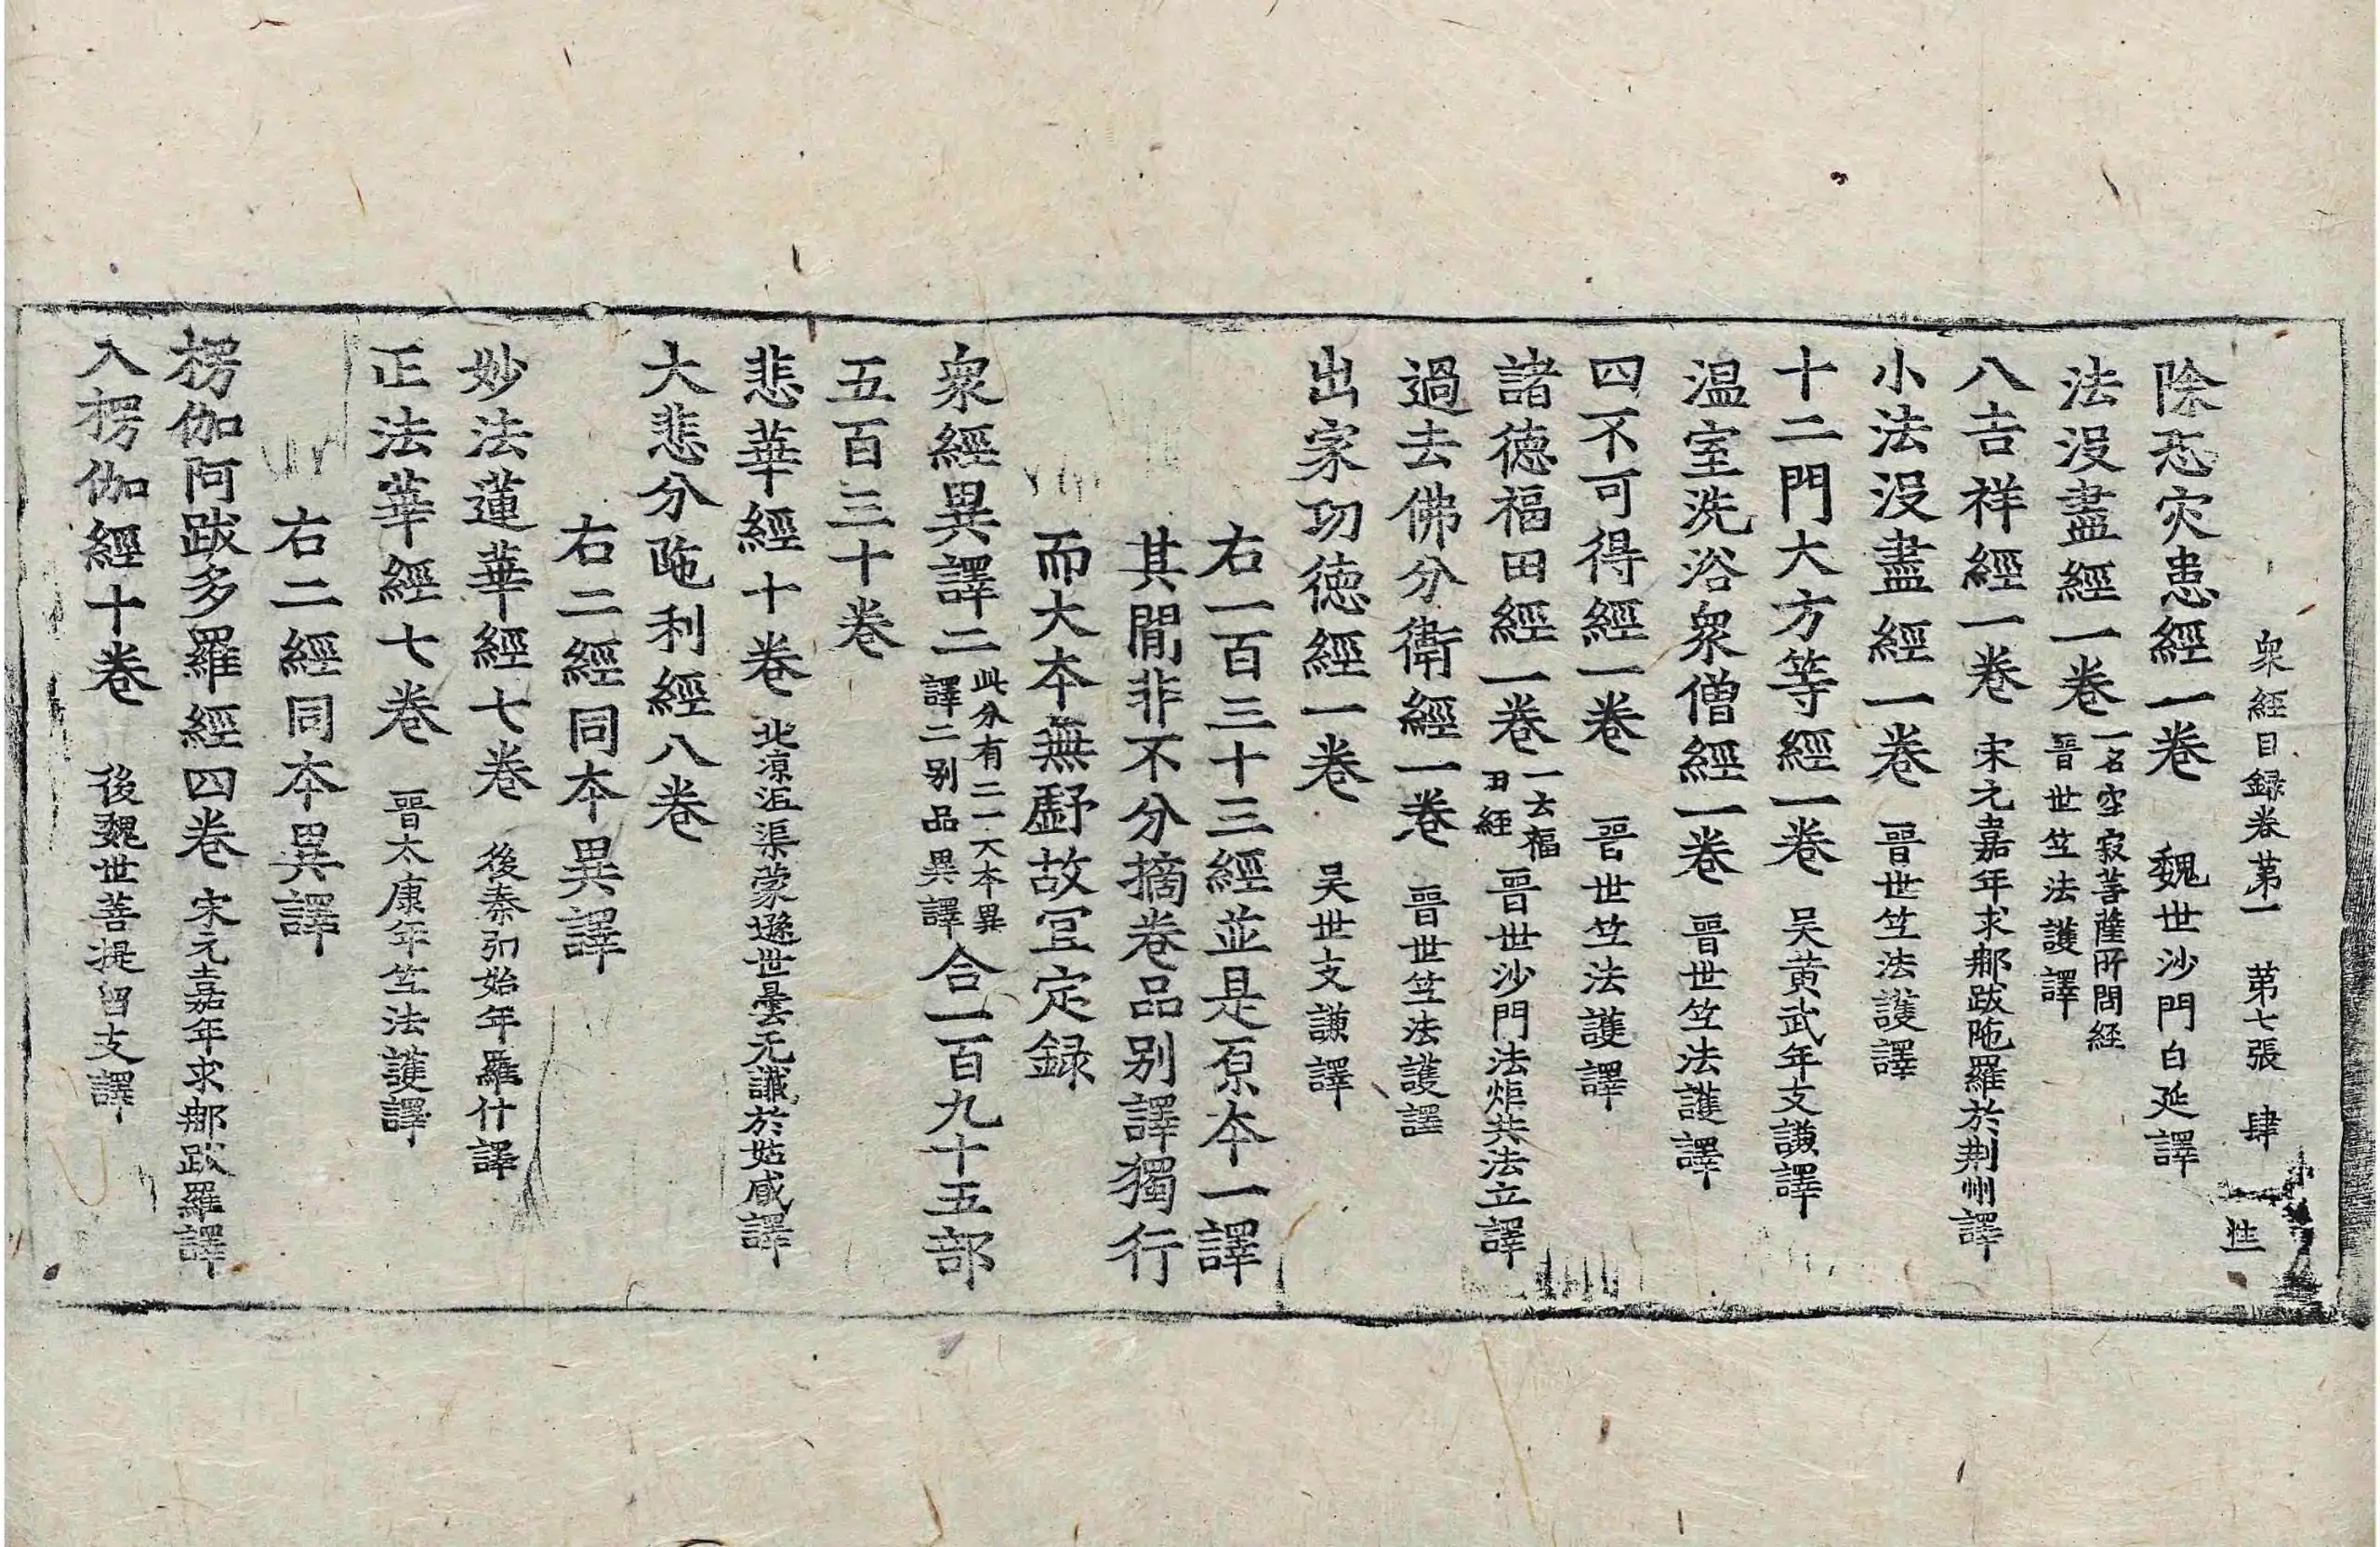 衆經目録卷第一　第七張　肆
除恐灾患經一卷　魏世沙門白延譯
法没盡經一卷　一名空寂菩薩所問経
晉世竺法護譯
八吉祥經一卷　宋元嘉年求那跋陁羅於荆州譯
小法没盡經一卷　晉世竺法護譯
十二門大方等經一卷　吴黄武年支謙譯
温室洗浴衆僧經一卷　晉世竺法護譯
四不可得經一卷　晉世竺法護譯
諸德福田經一卷　一云福田經　晉世沙門法炬共法立譯
過去佛分衛經一卷　晉世竺法護譯
出家功德經一卷　吴世支謙譯
右一百三十三經並是原本一譯
其間非不分摘卷品别譯獨行
而大本無虧故冝定録
衆經異譯二　此分有二一大本異譯二别品異譯　合一百九十五部
五百三十卷
悲華經十卷　北凉沮渠蒙遜世曇无讖於姑臧譯
大悲分陁利經八卷
右二經同本異譯
妙法蓮華經七卷　後秦弘始年羅什譯
正法華經七卷　晉太康年竺法護譯
右二經同本異譯
楞伽阿跋多羅經四卷　宋元嘉年求那跋羅譯
入楞伽經十卷　後魏世菩提留支譯